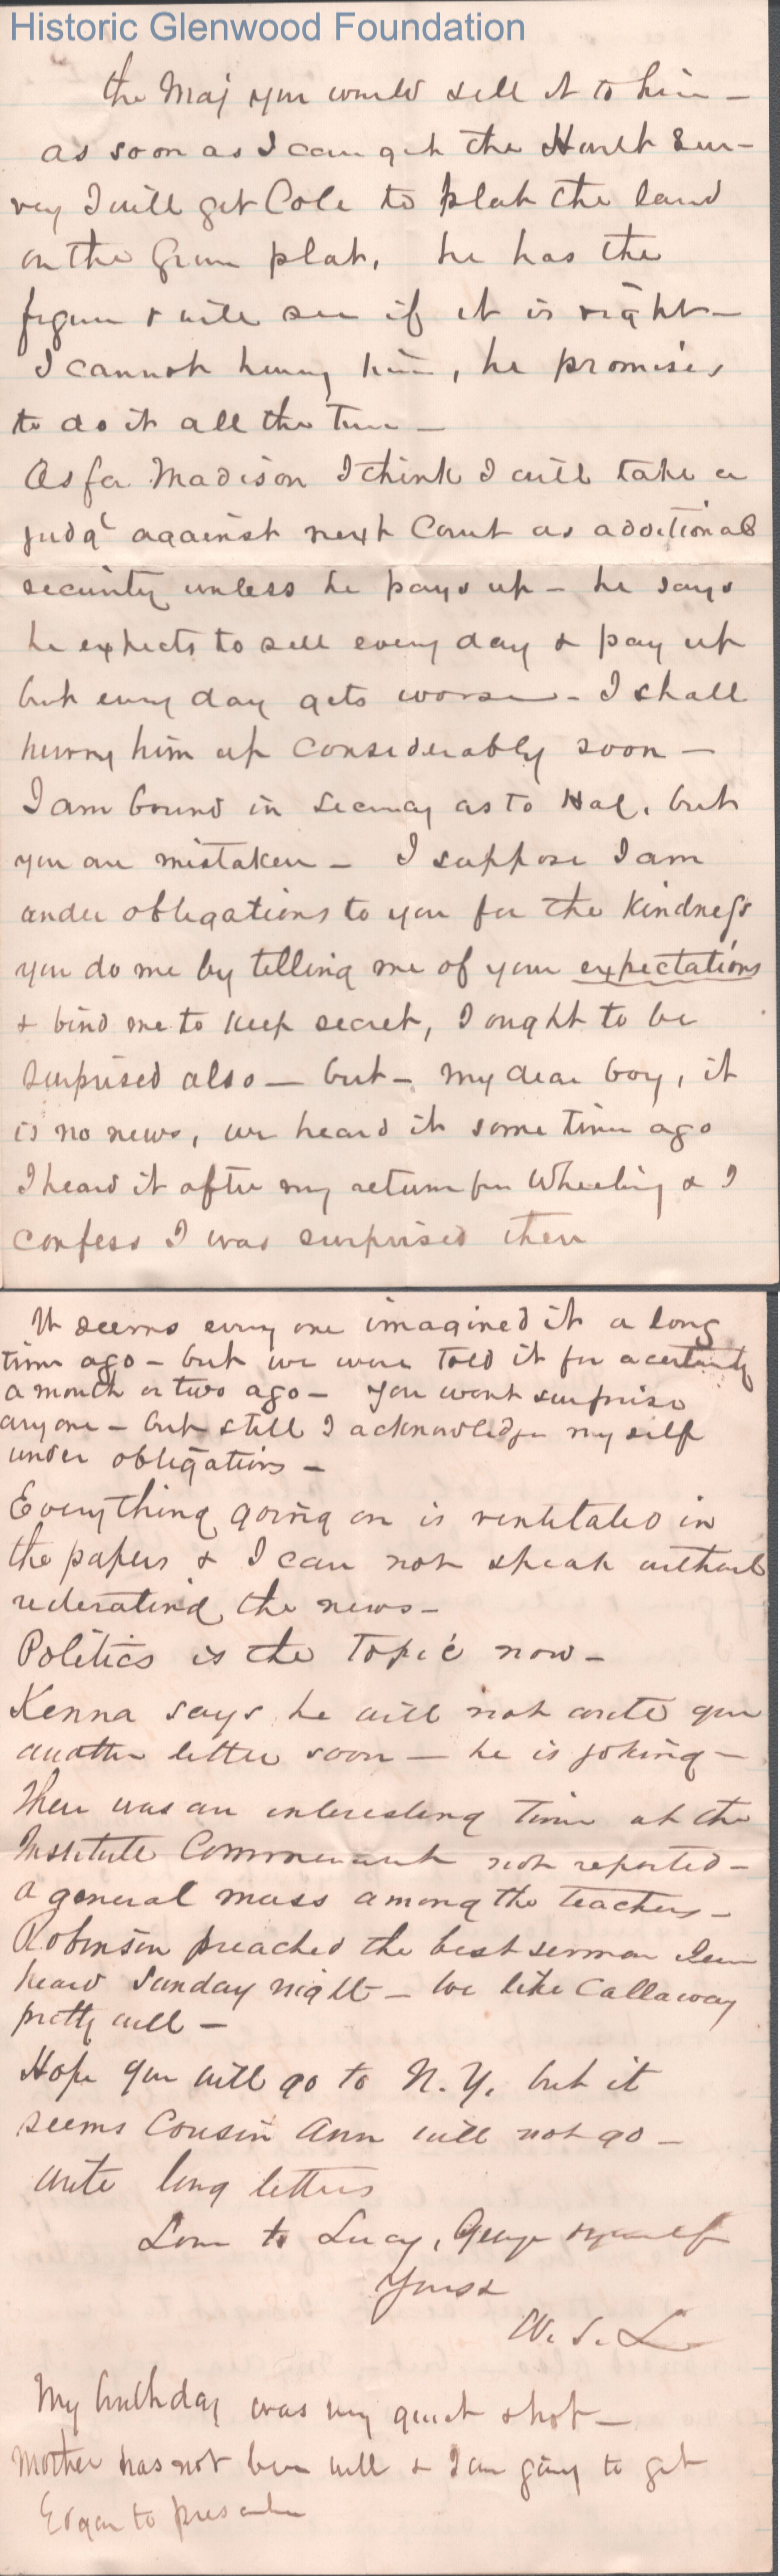 Historic Glenwood Foundation
the Maj you would sell it to him –
as soon as I can get the Sur–
vey I will get Cole to plat the land
on the plat, he has the
figures & will see if it is right –
I cannot hurry him, he promises
to do it all the time –
As for Madison I think I will take a
judgt against next Court as additional
security unless he pays up – he says
he expects to sell every day & pay up
but every day gets worse – I shall
hurry him up considerably soon –
I am bound in secrecy as to Hal. but
you are mistaken – I suppose I am
under obligations to you for the kindness
you do me by telling me of your expectations
& bind me to keep secret, I ought to be
surprised also – but – my dear boy, it
is no news, we heard it some time ago
I heard it after my return from Wheeling & I
confess I was surprised then
It seems every one imagined it a long
time ago – but we were told it for a certainty
a month or two ago – you wont surprise
anyone – but still I acknowledge myself
under obligations –
Everything going on is ventilated in
the papers & I can not speak without
reiterating the news –
Politics is the topic now –
Kenna says he will not write you
another letter soon – he is joking –
There was an interesting time at the
Institute Commencement not reported –
a general muss among the teachers –
Robinson preached the best sermon I ever
heard Sunday night – We like Callaway
pretty well –
Hope you will go to N.Y. but it
seems Cousin Ann will not go –
write long letters
Love to Lucy, George & yourself
Yours &
W. S. L
My birthday was very quiet & hot –
Mother has not been well & I am going to get
Edgar to prescribe